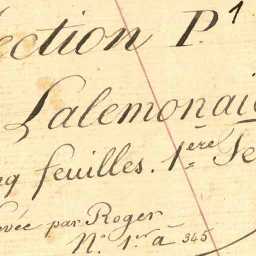 ection P.1
Lalemonai
nq feuilles. 1ère Se
evée par Roger
N.os 1er à 345